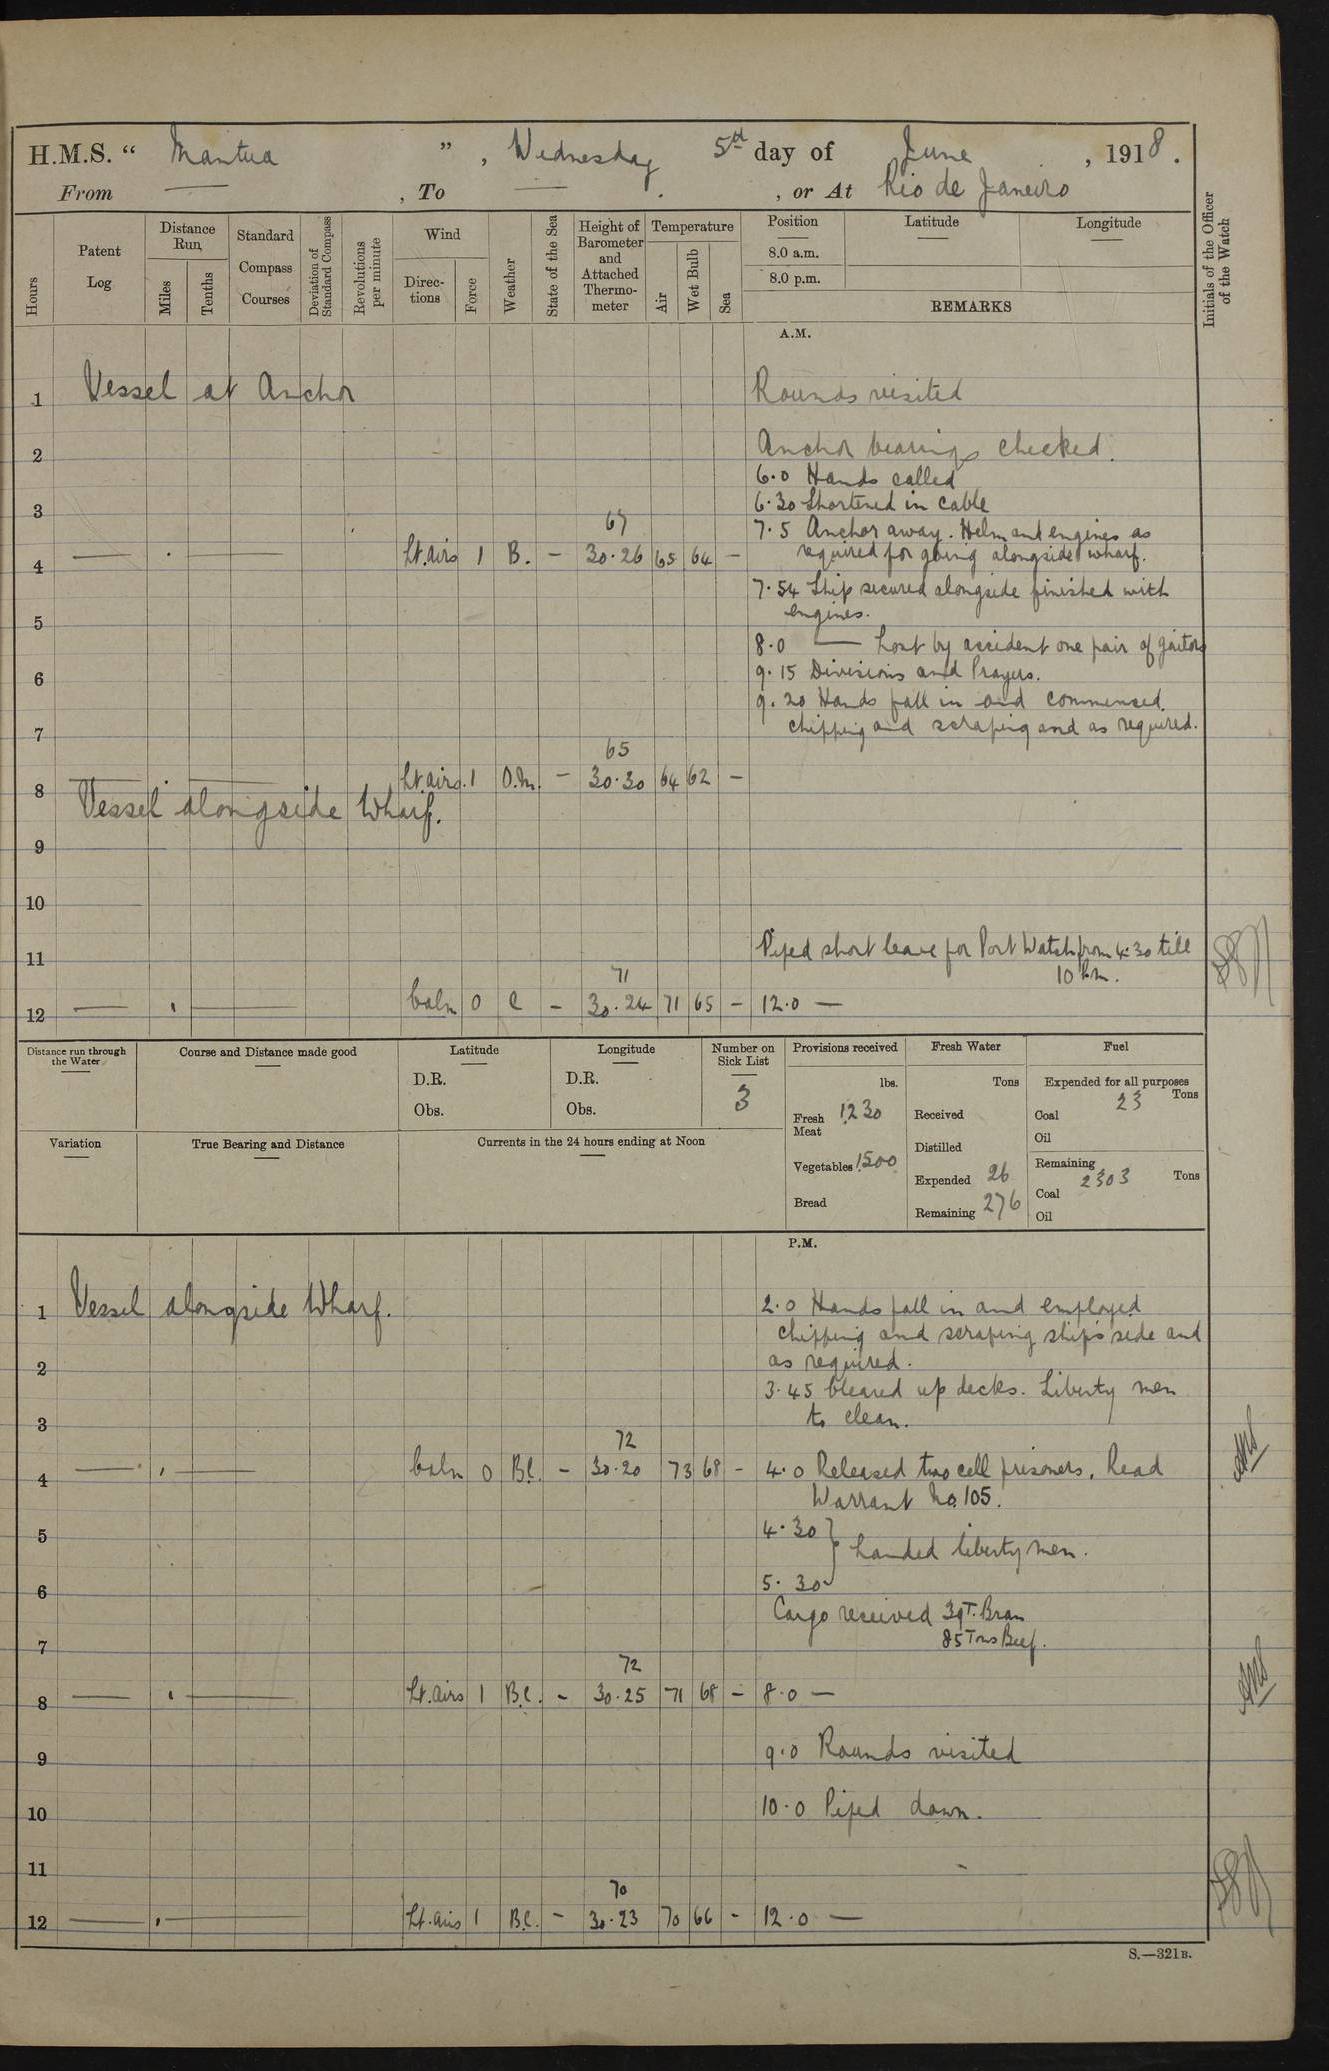 H.M.S. “ Mantua ” , Wednesday 5th day of June , 1918 .
From — , To — . , or At Rio de Janeiro
Hours
Patent Log
Distance Run
Miles
Tenths
Standard Compass Courses
Deviation of Standard Compass
Revolutions per minute
Wind
Directions
Force
Weather
State of the Sea
Height of Barometer and Attached Thermometer
Temperature
Air
Wet Bulb
Sea
Position
Latitude
Longitude
8.0 a.m.
8.0 p.m.
REMARKS
Initials of the Officer of the Watch
A.M.
1 Vessel at Anchor Rounds visited
2 Anchor bearings checked.
6.0 Hands called
3 6.30 Shortened in cable
67
7.5 Anchor away. Helm and engines as
4 — . — Lt. airs 1 B. — 30.26 65 64 — required for going alongside wharf.
7.54 Ship secured alongside finished with
5 engines.
8.0 — Lost by accident one pair of gaitors
6 9.15 Divisions and Prayers.
9.20 Hands fall in and commenced
7 chipping and scraping and as required.
65
8 — . — Lt. airs. 1 O.M. — 30.30 64 62 —
Vessel alongside Wharf.
9
10
11 Piped short leave for Port Watch from 4.30 till
71 10 P.M.
12 — . — Calm 0 C — 30.24 71 65 — 12.0 —
Distance run through the Water
Course and Distance made good
Latitude
D.R.
Obs.
Longitude
D.R.
Obs.
Number on Sick List
3
Provisions received
lbs.
Fresh Meat 1230
Vegetables 1500
Bread
Fresh Water
Tons
Received
Distilled
Expended 26
Remaining 276
Fuel
Expended for all purposes
Tons
Coal 23
Oil
Remaining
Tons
Coal 2303
Oil
Variation
True Bearing and Distance
Currents in the 24 hours ending at Noon
P.M.
1 Vessel alongside Wharf. 2.0 Hands fall in and employed
chipping and scraping ship's side and
2 as required.
3.45 Cleared up decks. Liberty men
3 to clean.
72
4 — . — Calm 0 B.C. — 30.20 73 68 — 4.0 Released two cell prisoners, Read
Warrant No. 105.
4.30 }
5 Landed liberty men.
6 5.30
Cargo received 39T. Bran
7 85 Tons Beef.
72
8 — . — Lt. airs 1 B.C. — 30.25 71 68 — 8.0 —
9 9.0 Rounds visited
10 10.0 Piped down.
11
70
12 — . — Lt. airs 1 B.C. — 30.23 70 66 — 12.0 —
S.—321B.